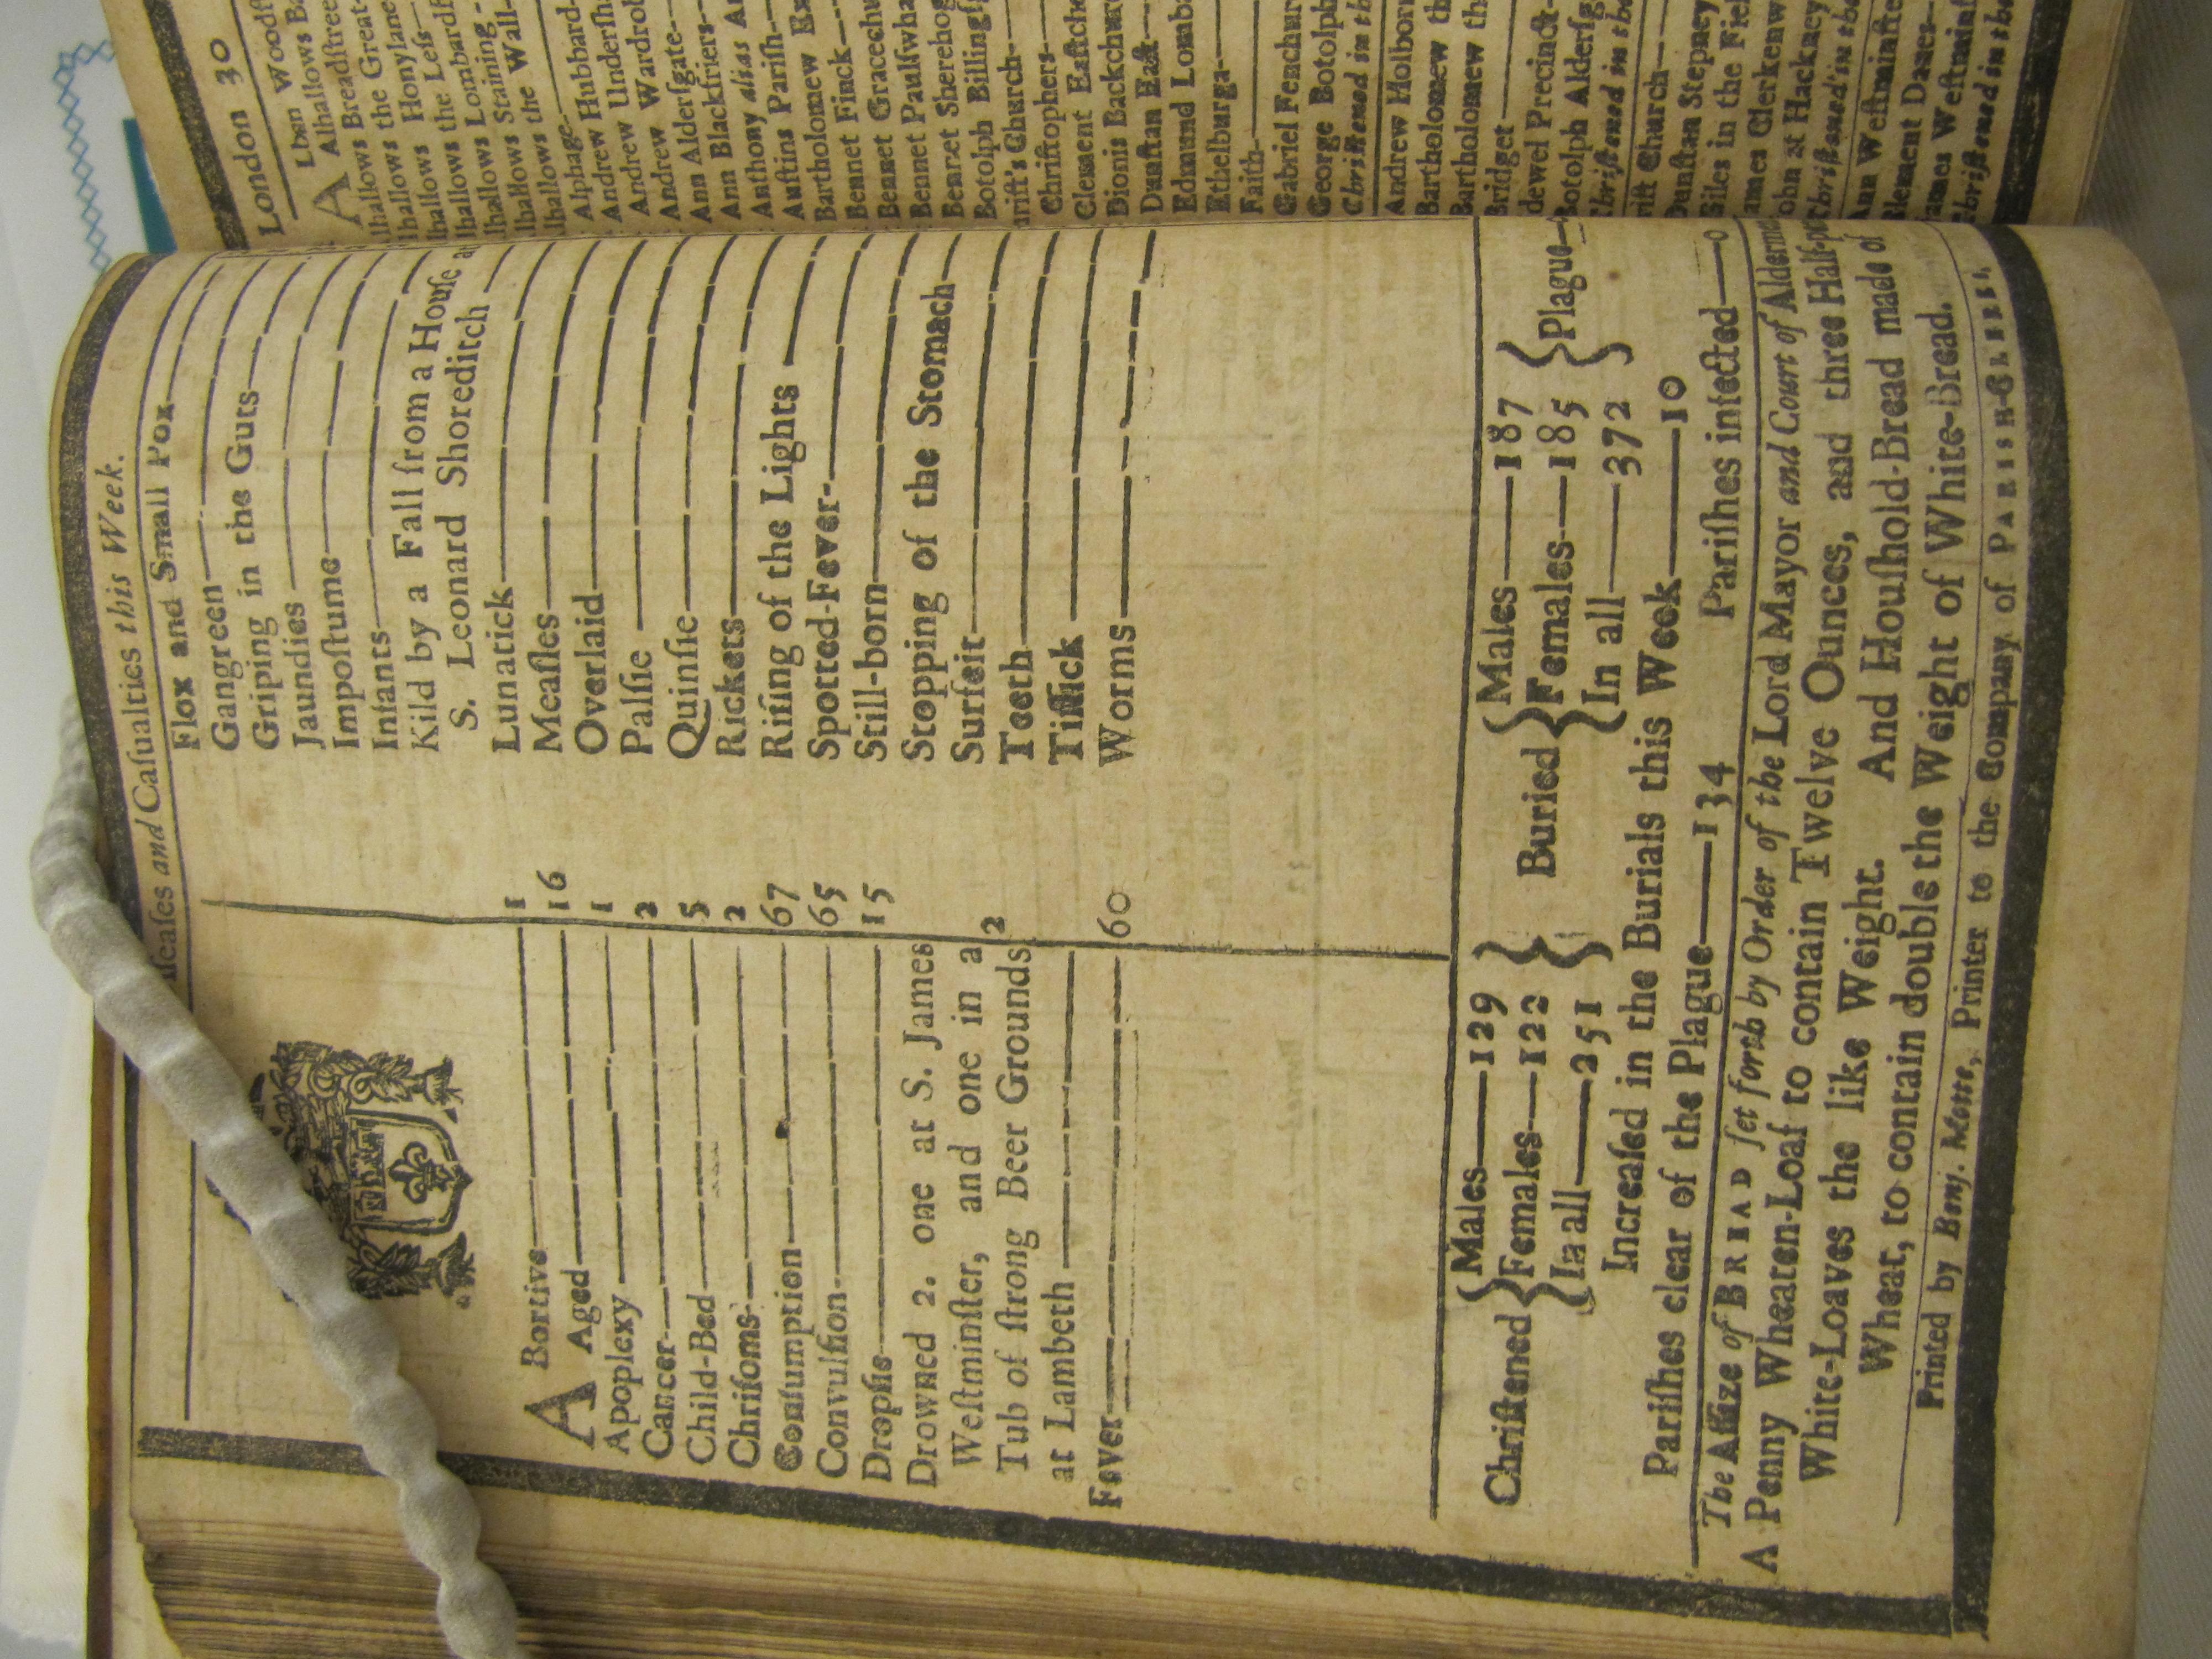 The Diseases and Casualties this Week.
ABortive 1
Aged 16
Apoplexy 1
Cancer 2
Child-Bed 5
Chrisoms 2
Consumption 67
Convulsion 65
Dropsie 15
Drowned 2. one at S. James
Westminster, and one in a
Tub of strong Beer Grounds
at Lambeth 2
Fever 60
Flox and Small Pox
Gangreen
Griping in the Guts
Jaundies
Impostume
Infants
Kild by a Fall from a House at
S. Leonard Shoreditch
Lunatick
Measles
Overlaid
Palsie
Quinsie
Rickets
Rising of the Lights
Spotted-Fever
Still-born
Stopping of the Stomach
Surfeit
Teeth
Tissick
Worms
Christened { Males—129
Females—122
In all—251 }
Buried { Males—187
Females—185
In all—372 } Plague
Increased in the Burials this Week—10
Parishes clear of the Plague—134 Parishes infected—0
The Assize of BREAD set forth by Order of the Lord Mayor and Court of
A Penny Wheaten-Loaf to contain Twelve Ounces, and three
White-Loaves the like Weight. And Houshold-Bread made of
Wheat, to contain double the Weight of White-Bread.
Printed by Benj. Motte, Printer to the Company of PARISH-CLERKS.
London 30
ALban Woodst
Alhallows Ba
lhallows Breadstree
lhallows the Great
lhallows Honylane
lhallows the Less
lhallows Lombardst
lhallows Staining
lhallows the Wall
Alphage
Andrew Hubbard
Andrew Undersha
Andrew Wardrob
Ann Aldersgate
Ann Blackfriers
Anthony alias A
Austins Parish
Bartholomew Ex
Bennet Finck
Bennet Gracechu
Bennet Paulswha
Bennet Sherehog
Botolph Billings
rist's Church
Christophers
Clement Eastche
Dionis Backchur
Dunstan East
Edmund Lomba
Ethelburga
Faith
Gabriel Fenchur
George Botolph
Christned in th
Andrew Holborn
Bartholomew th
Bartholomew th
Bridget
dewel Precinct
otolph Aldersg
Christned in the
rist Church
unstan Stepney
Giles in the Fiel
ames Clerkenw
ohn at Hackney
Christned in the
Ann Westminste
lement Danes
ames Westminst
Christned in the